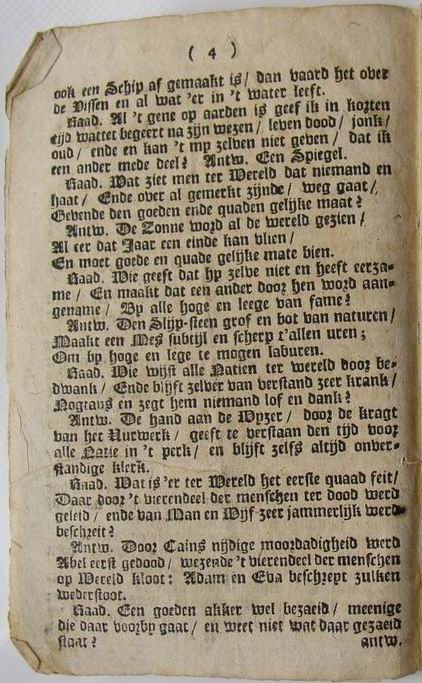 ( 4 )
ook een Schip af gemaakt is / dan vaard het over
de Vissen en al wat 'er in 't water leeft.
Raad. Al 't gene op aarden is geef ik in korten
tijd wattet begeert na zijn wezen / leven dood / jonk /
oud / ende en kan 't my zelven niet geven / dat ik
een ander mede deel? Antw. Een Spiegel.
Raad. Wat ziet men ter Wereld dat niemand en
haat / Ende over al gemerkt zijnde / weg gaat /
Gevende den goeden ende quaden gelijke maat?
Antw. De Zonne word al de wereld gezien /
Al eer dat Jaar een einde kan vlien /
En moet goede en quade gelijke mate bien.
Raad. Wie geeft dat hy zelve niet en heeft eerza-
me / En maakt dat een ander door hen word aan-
gename / By alle hoge en leege van fame?
Antw. Den Slijp-steen grof en bot van naturen /
Maakt een Mes subtijl en scherp t'allen uren;
Om by hoge en lege te mogen laburen.
Raad. Wie wijst alle Natien ter wereld door be-
dwank / Ende blijft zelver van verstand zeer krank /
Nogtans en zegt hem niemand lof en dank?
Antw. De hand aan de Wyzer / door de kragt
van het Uurwerk / geeft te verstaan den tijd voor
alle Natie in 't perk / en blijft zelfs altijd onver-
standige klerk.
Raad. Wat is 'er ter Wereld het eerste quaad feit /
Daar door 't vierendeel der menschen ter dood werd
geleid / ende van Man en Wijf zeer jammerlijk werd
beschreit?
Antw. Door Cains nijdige moordadigheid werd
Abel eerst gedood / wezende 't vierendeel der menschen
op Wereld kloot: Adam en Eva beschreyt zulken
wederstoot.
Raad. Een goeden akker wel bezaeid / meenige
die daar voorby gaat / en weet niet wat daar gezaeid
staat?
antw.